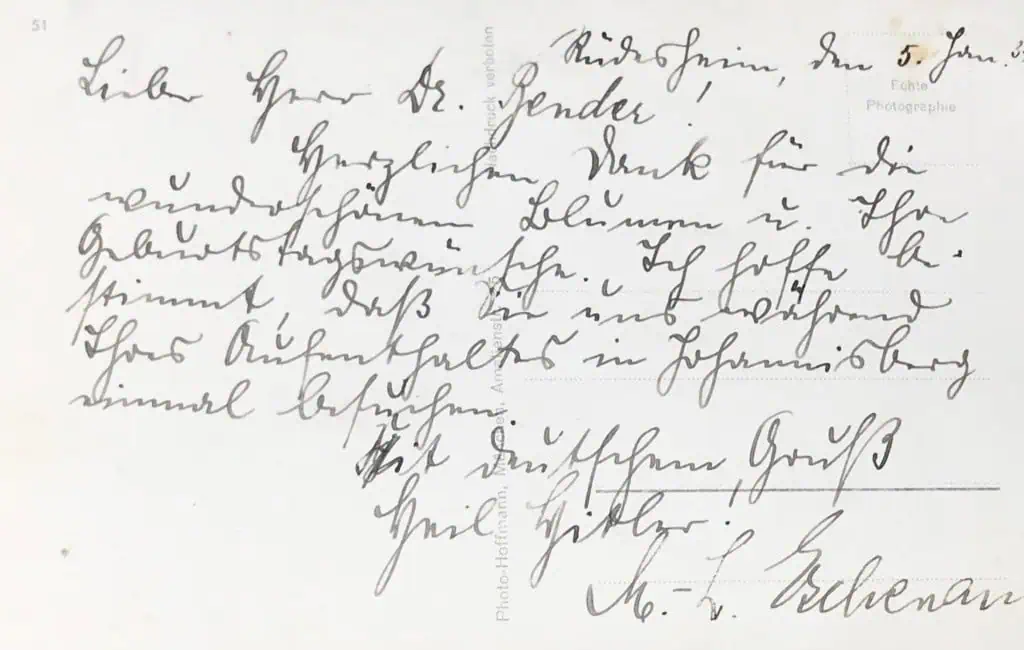 51
Rüdesheim, den 5. Jan.
Echte
Photographie
Lieber Herr Dr. Bender!
Herzlichen Dank für die
wunderschönen Blumen u. Ihre
Geburtstagswünsche. Ich hoffe be-
stimmt, daß Sie uns während
Ihres Aufenthaltes in Johannisberg
einmal besuchen.
Mit deutschem Gruß
Heil Hitler!
M.-L.
Photo-Hoffmann, München, Amalienstr. 25
Nachdruck verboten